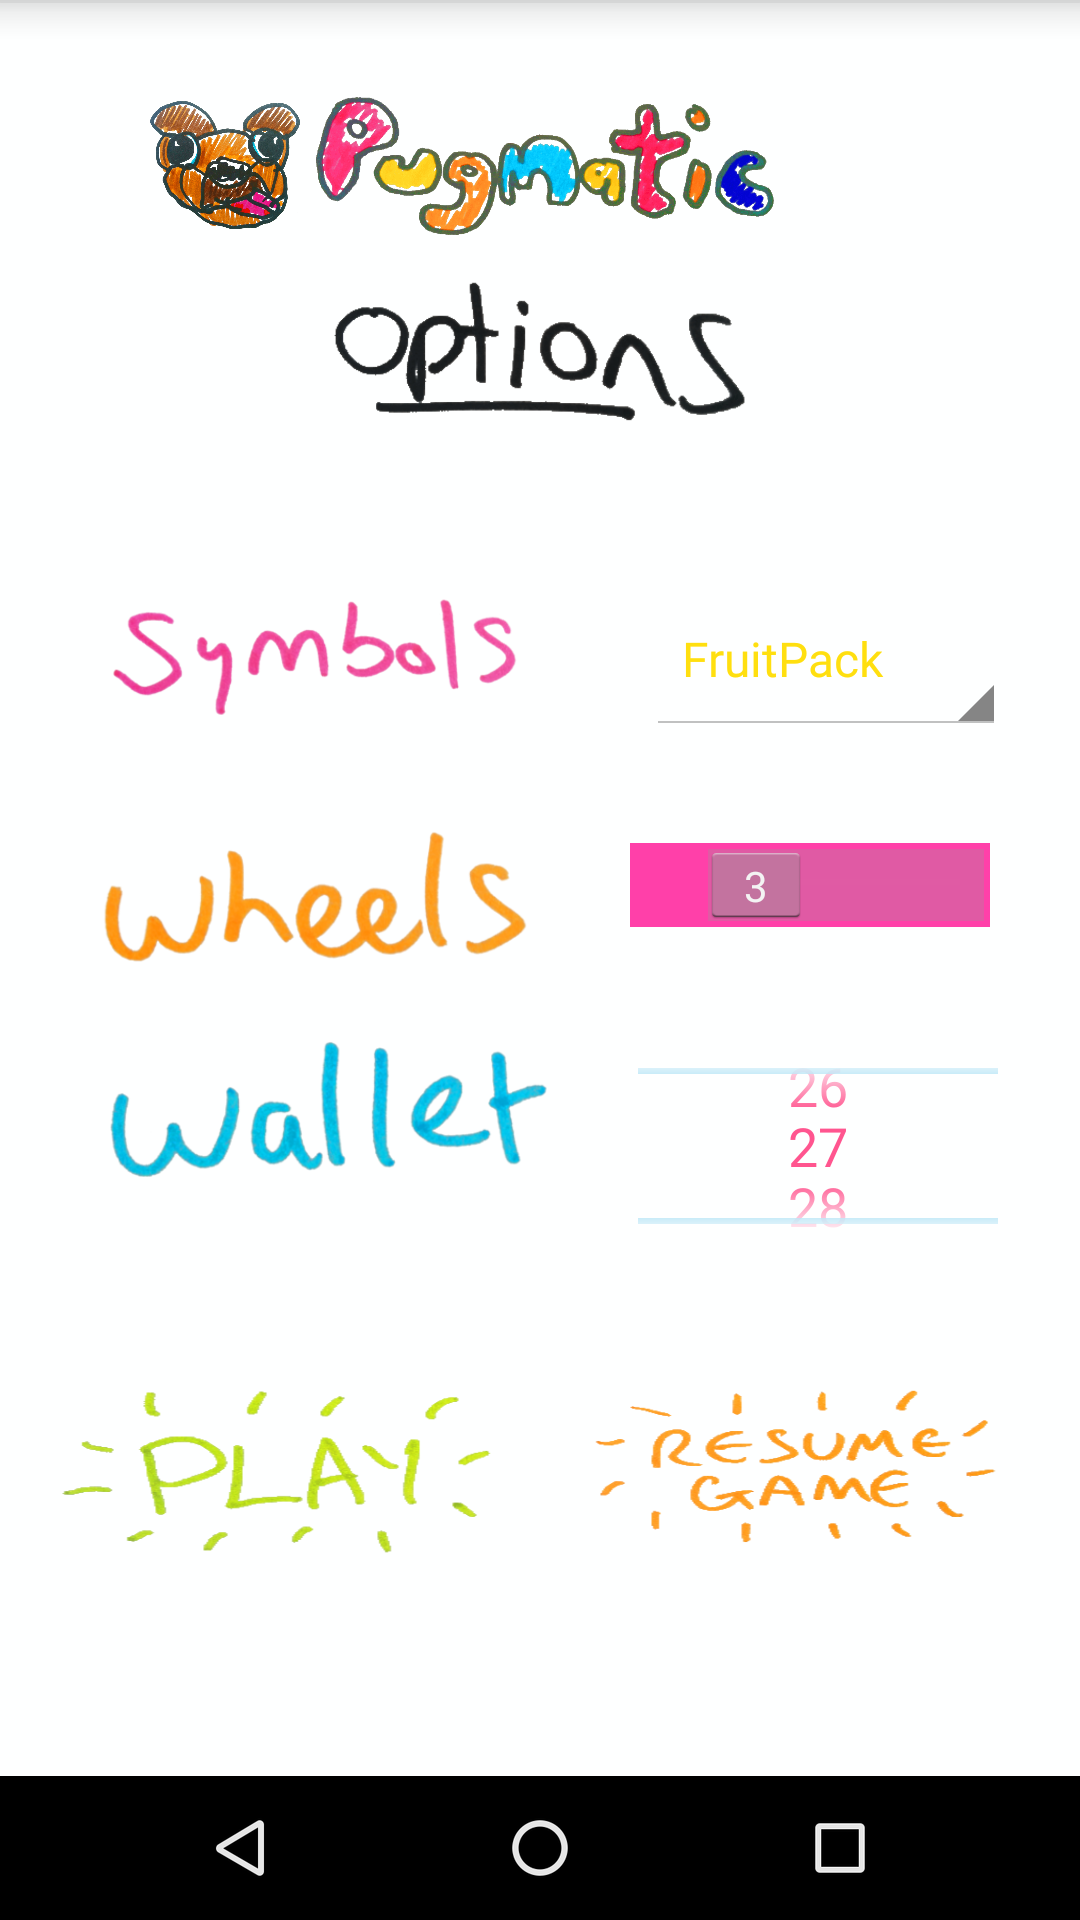 Pugmatic
options
Symbols
FruitPack
wheels
3
wallet
26
27
28
PLAY
RESUME
GAME